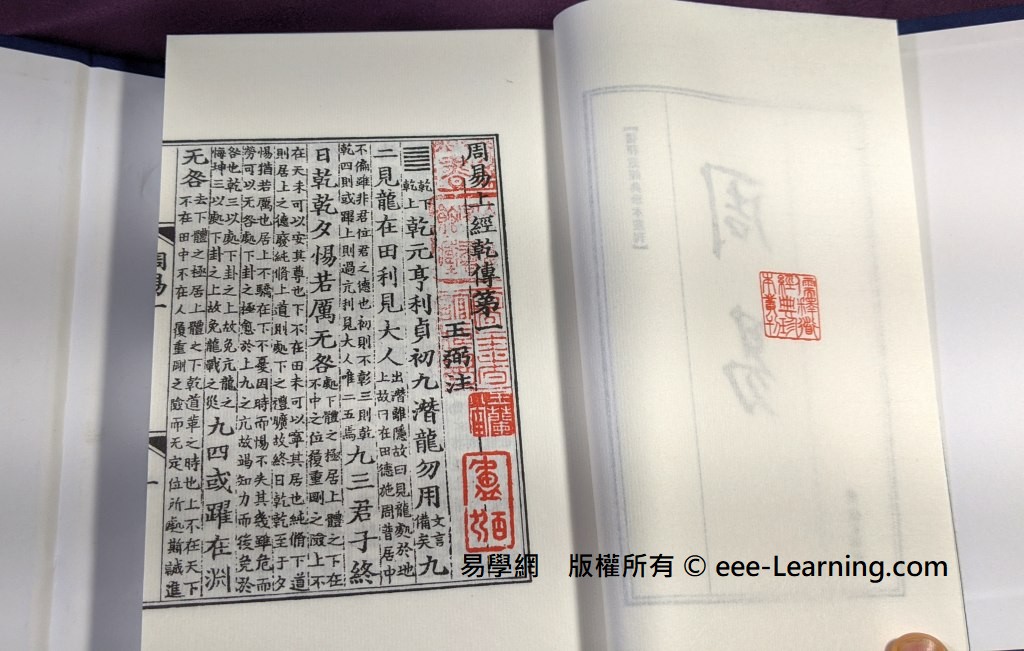 周易
周易上經乾傳第一
王弼注
䷀
乾下
乾上
乾元亨利貞初九潛龍勿用
文言
備矣
九
二見龍在田利見大人
出潛離隱故曰見龍處於地
上故曰在田德施周普居中
不偏雖非君位君之德也初則不彰三則乾
乾四則或躍上則過亢利見大人唯二五焉
九三君子終
日乾乾夕惕若厲无咎
處下體之極居上體之下在
不中之位履重剛之險上不
在天未可以安其尊也下不在田未可以寧其居也純脩下道
則居上之德廢純脩上道則處下之禮曠故終日乾乾至于夕
惕猶若厲也居上不驕在下不憂因時而惕不失其幾雖危而
勞可以无咎處下卦之極愈於上九之亢故竭知力而後免於
咎也乾三以處下卦之上故免亢龍之
悔坤三以處下卦之上故免龍戰之災
九四或躍在淵
无咎
去下體之極居上體之下乾道革之時也上不在天下
不在田中不在人履重剛之險而无定位所處斯誠進
周易一
易學網 版權所有 © eee-Learning.com